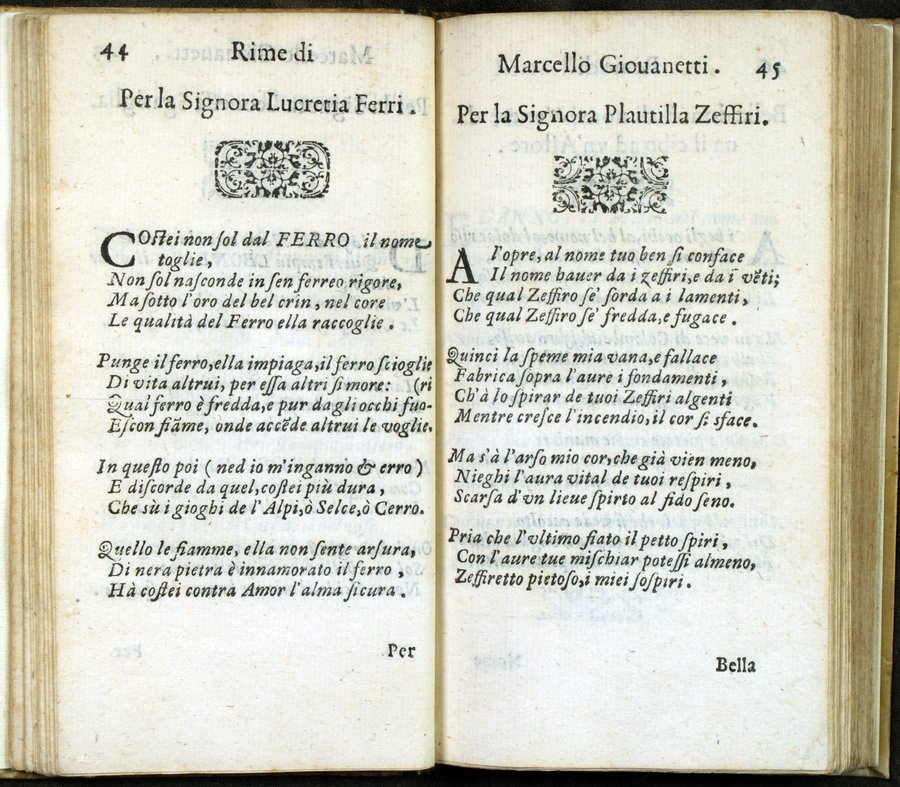 44 Rime di
Per la Signora Lucretia Ferri.
COstei non sol dal FERRO il nome
toglie,
Non sol nasconde in sen ferreo rigore,
Ma sotto l'òro del bel crin, nel core
Le qualità del Ferro ella raccoglie.
Punge il ferro, ella impiaga, il ferro scioglie
Di vita altrui, per essa altri si more: (ri
Qual ferro è fredda, e pur da gli occhi fuo-
Escon fiãme, onde accẽde altrui le voglie.
In questo poi (ned io m'inganno & erro)
E discorde da quel, costei più dura,
Che sù i gioghi de l'Alpi, ò Selce, ò Cerro.
Quello le fiamme, ella non sente arsura,
Di nera pietra è innamorato il ferro,
Hà costei contra Amor l'alma sicura.
Per
Marcello Giouanetti. 45
Per la Signora Plautilla Zeffiri.
A l'opre, al nome tuo ben si conface
Il nome hauer da i zeffiri, e da ï vẽti;
Che qual Zeffiro se' sorda a i lamenti,
Che qual Zeffiro se' fredda, e fugace.
Quinci la speme mia vana, e fallace
Fabrica sopra l'aure i fondamenti,
Ch'à lo spirar de tuoi Zeffiri algenti
Mentre cresce l'incendio, il cor si sface.
Ma s'à l'arso mio cor, che già vien meno,
Nieghi l'aura vital de tuoi respiri,
Scarsa d'vn lieue spirto al fido seno.
Pria che l'vltimo fiato il petto spiri,
Con l'aure tue mischiar potessi almeno,
Zeffiretto pietoso, i miei sospiri.
Bella